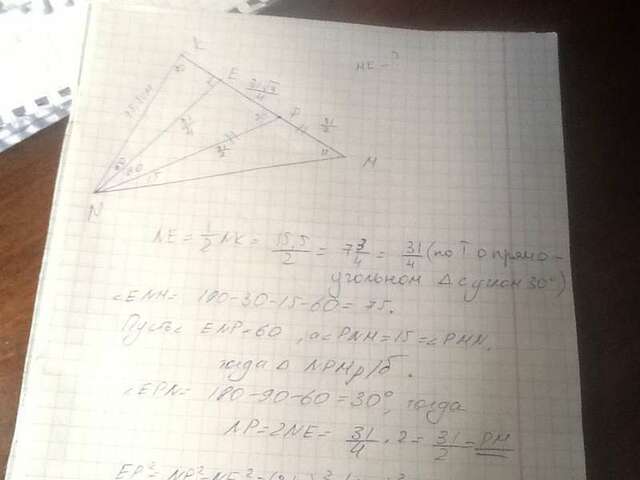 K
ME - ?
E
P
M
N
60
15
NE = 1/2 NK = 15,5/2 = 7 3/4 = 31/4 (по Т о прямо-
угольном Δ с углом 30°)
∠ENM = 180-30-15-60 = 75.
Пусть ∠ENP=60, а ∠PNM=15=∠PMN,
тогда Δ NPM р/б.
∠EPN = 180-90-60=30°, тогда
NP=2NE = 31/4 · 2 = 31/2 = PM
EP²=NP²-NE²